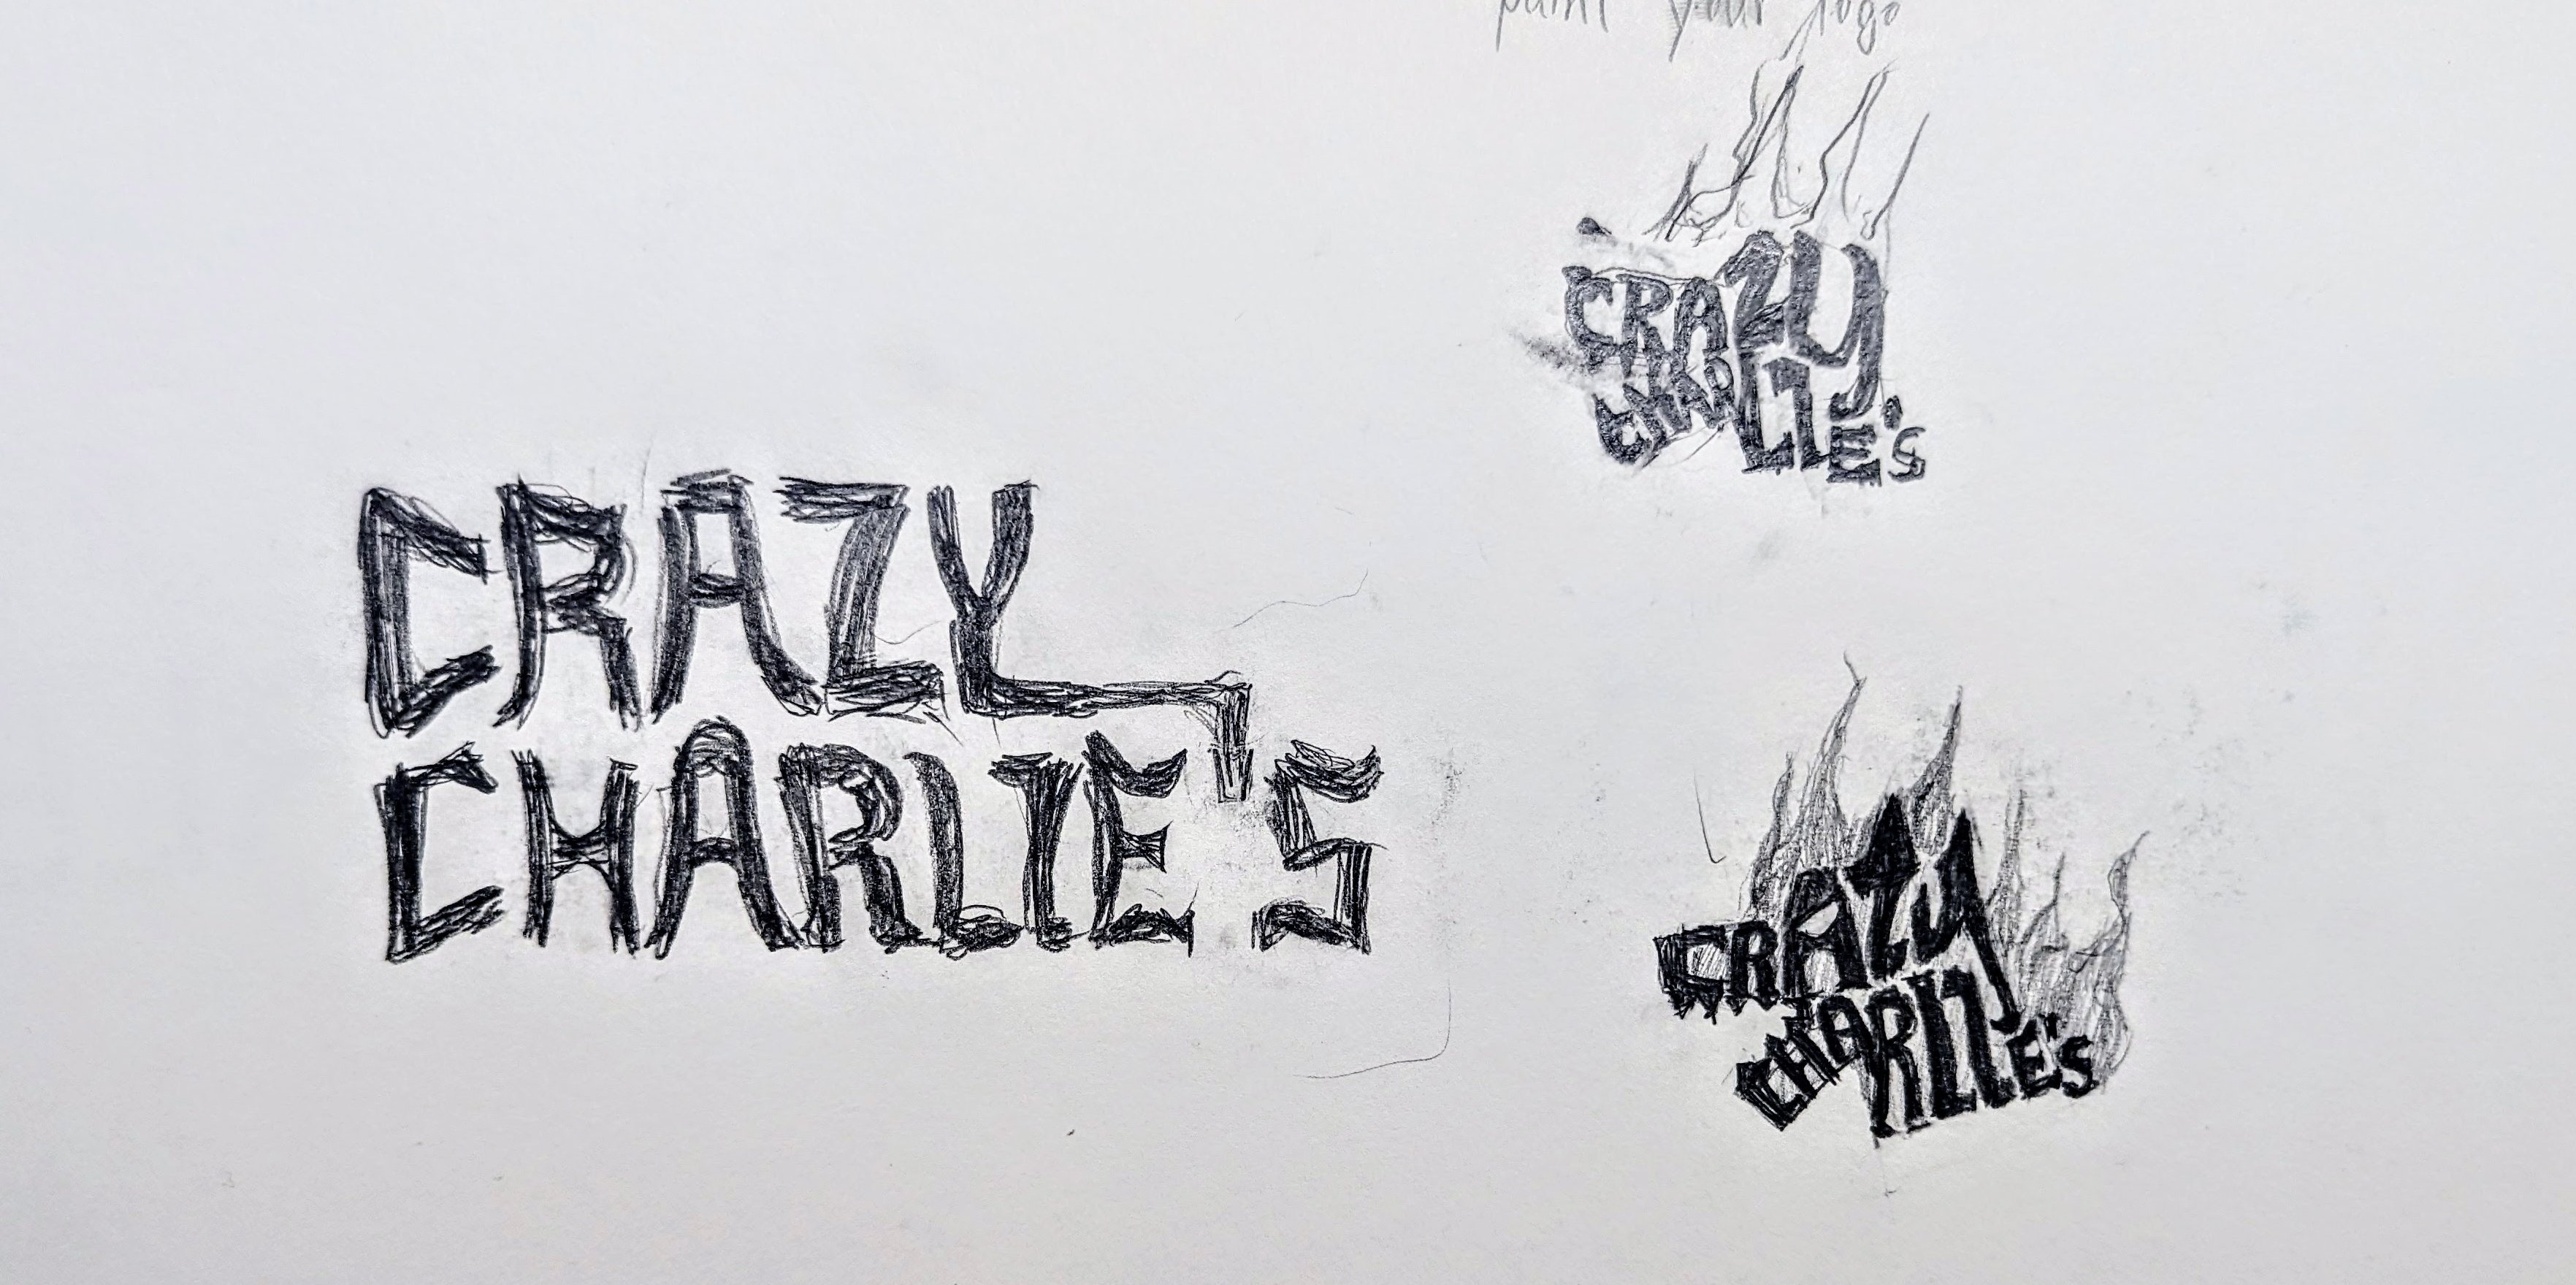 paint your logo
CRAZY
CHARLIE'S
CRAZY
CHARLIE'S
CRAZY
CHARLIE'S